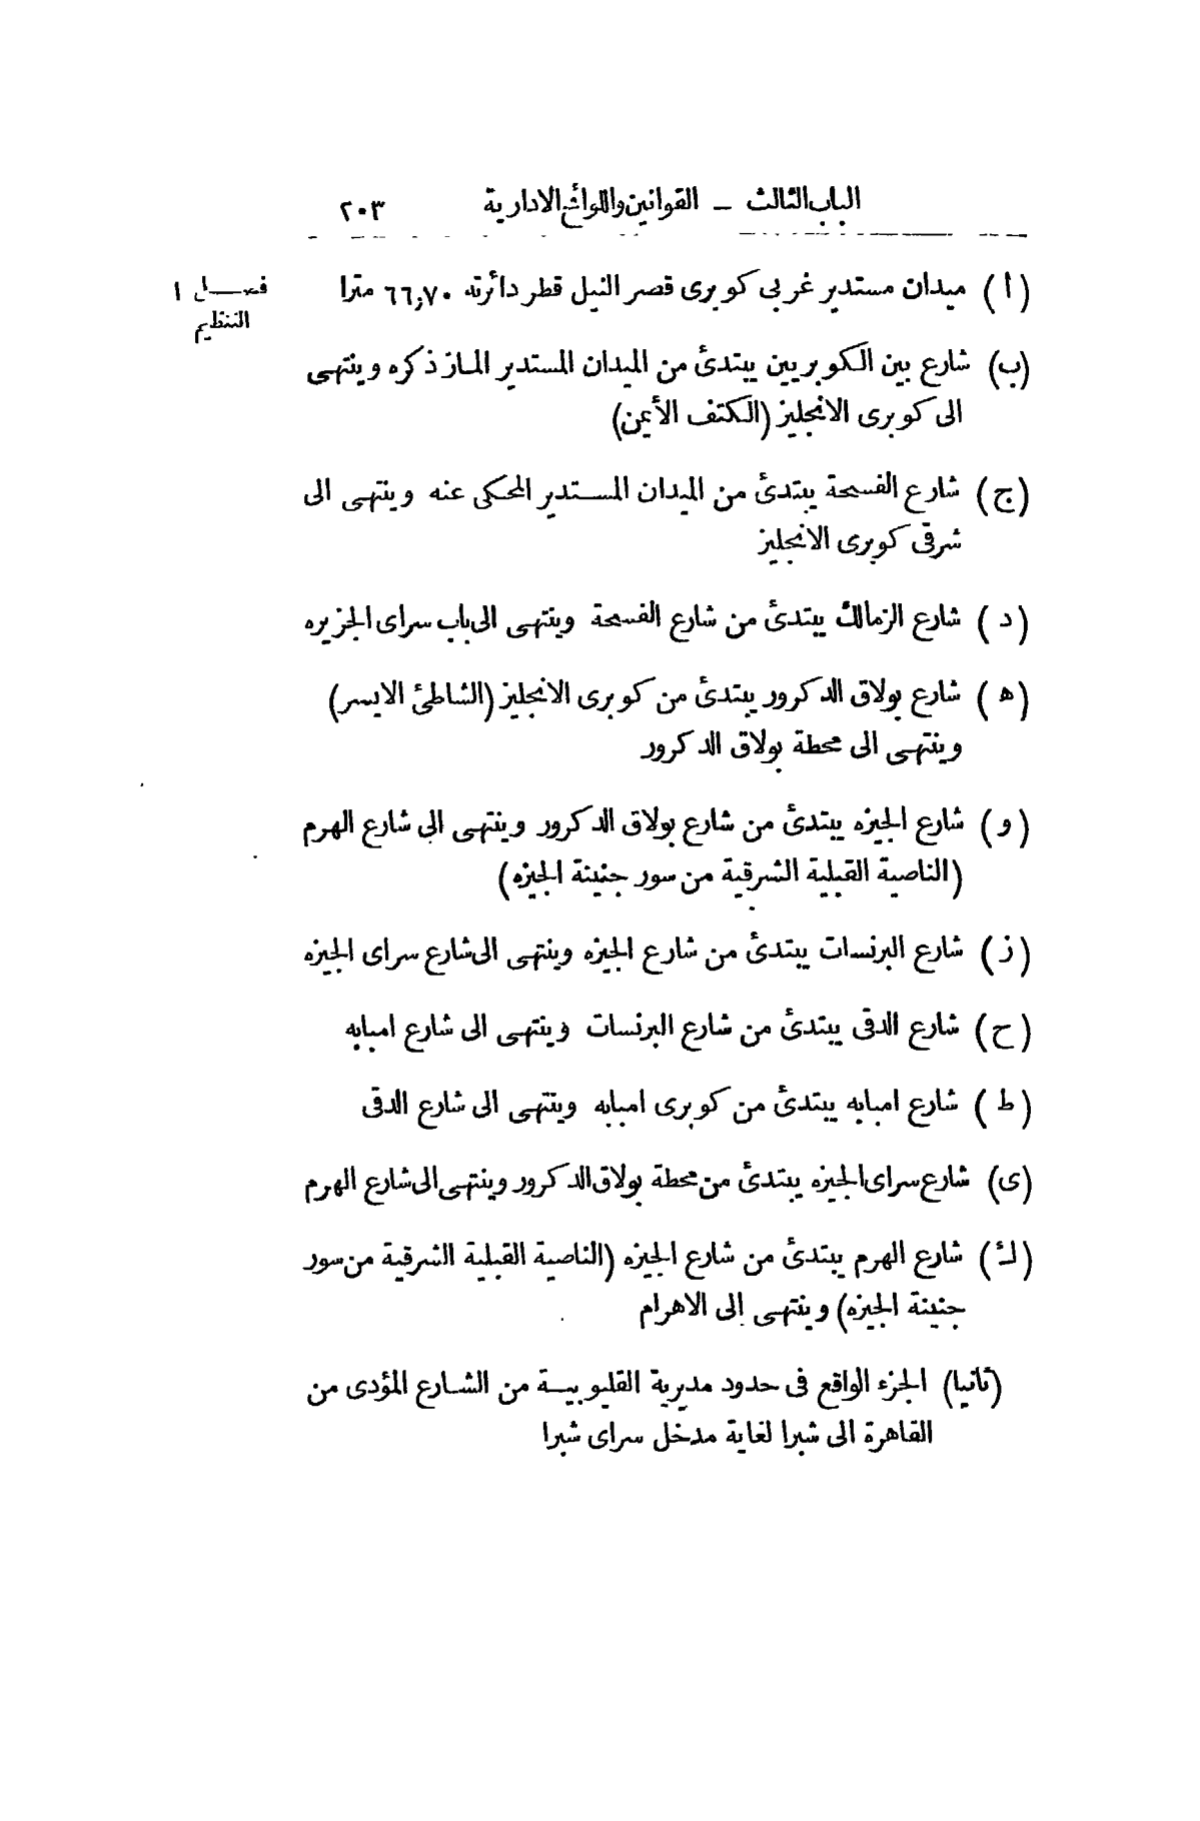 الباب الثالث — القوانين واللوائح الادارية ٢٠٣
فصـــل ١
التنظيم
(ا) ميدان مستدير غربى كوبرى قصر النيل قطر دائرته ٦٦,٧٠ مترا
(ب) شارع بين الكوبريين يبتدئ من الميدان المستدير المار ذكره وينتهى
الى كوبرى الانجليز (الكتف الأيمن)
(ج) شارع الفسحة يبتدئ من الميدان المستدير المحكى عنه وينتهى الى
شرقى كوبرى الانجليز
(د) شارع الزمالك يبتدئ من شارع الفسحة وينتهى الى باب سراى الجزيره
(ه) شارع بولاق الدكرور يبتدئ من كوبرى الانجليز (الشاطئ الايسر)
وينتهى الى محطة بولاق الدكرور
(و) شارع الجيزه يبتدئ من شارع بولاق الدكرور وينتهى الى شارع الهرم
(الناصية القبلية الشرقية من سور جنينة الجيزه)
(ز) شارع البرنسات يبتدئ من شارع الجيزه وينتهى الى شارع سراى الجيزه
(ح) شارع الدقى يبتدئ من شارع البرنسات وينتهى الى شارع امبابه
(ط) شارع امبابه يبتدئ من كوبرى امبابه وينتهى الى شارع الدقى
(ى) شارع سراى الجيزه يبتدئ من محطة بولاق الدكرور وينتهى الى شارع الهرم
(ك) شارع الهرم يبتدئ من شارع الجيزه (الناصية القبلية الشرقية من سور
جنينة الجيزه) وينتهى الى الاهرام
(ثانيا) الجزء الواقع فى حدود مديرية القليوبيــة من الشــارع المؤدى من
القاهرة الى شبرا لغاية مدخل سراى شبرا